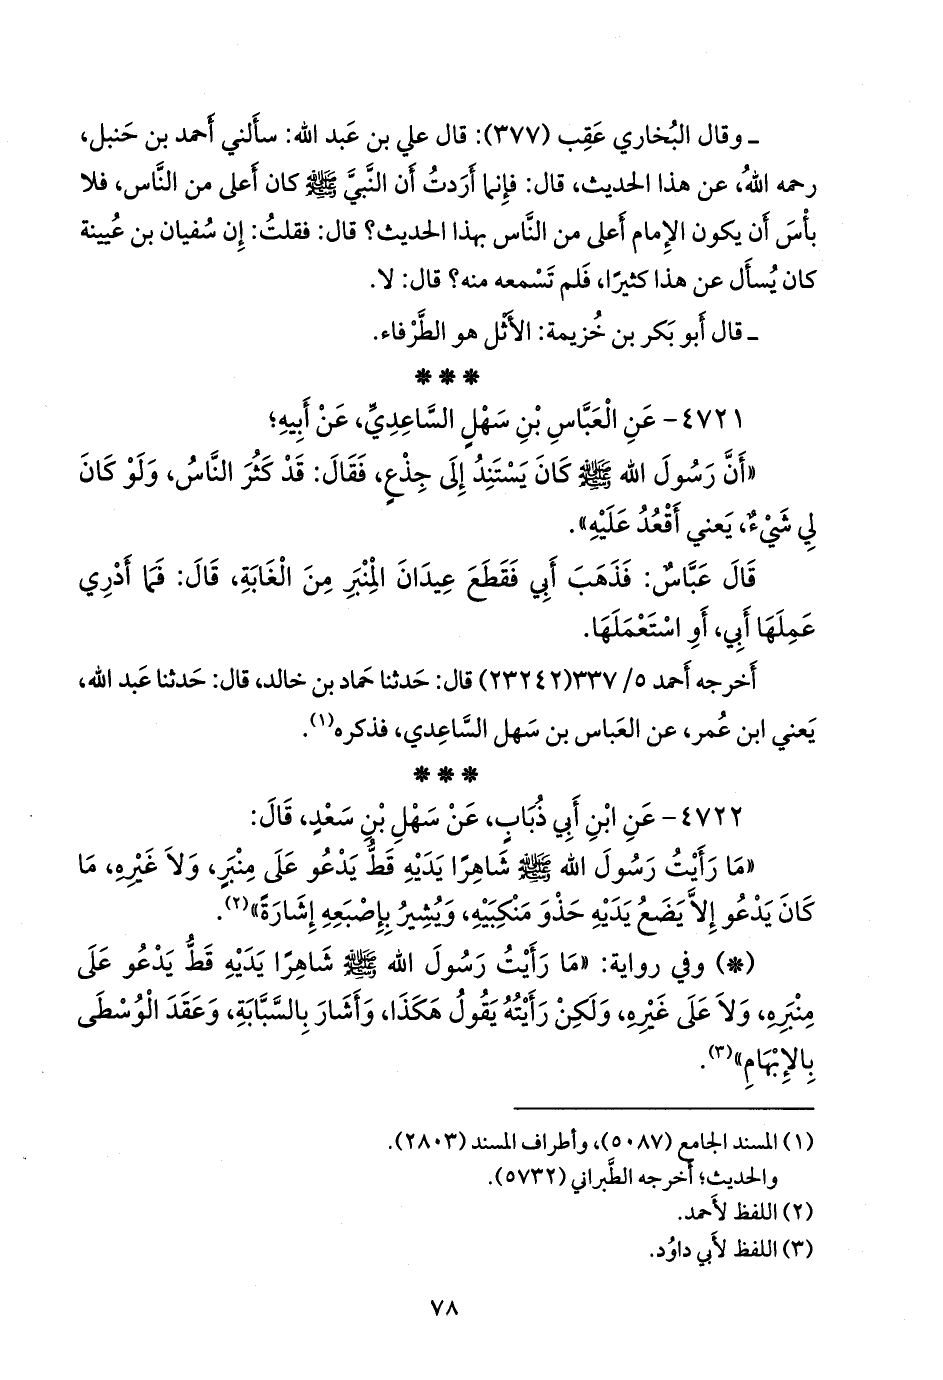 ـ وقال البُخاري عَقِب (٣٧٧): قال علي بن عَبد الله: سأَلني أَحمد بن حَنبل،
رحمه اللهُ، عن هذا الحديث، قال: فإِنما أَرَدتُ أَن النَّبيَّ ﷺ كان أَعلى من النَّاس، فلا
بأْسَ أَن يكون الإِمام أَعلى من النَّاس بهذا الحديث؟ قال: فقلتُ: إِن سُفيان بن عُيينة
كان يُسأَل عن هذا كثيرًا، فَلم تَسْمعه منه؟ قال: لا.
ـ قال أَبو بَكر بن خُزيمة: الأَثْل هو الطَّرْفاء.
* * *
٤٧٢١- عَنِ الْعَبَّاسِ بْنِ سَهْلٍ السَّاعِدِيِّ، عَنْ أَبِيهِ؛
«أَنَّ رَسُولَ الله ﷺ كَانَ يَسْتَنِدُ إِلَى جِذْعٍ، فَقَالَ: قَدْ كَثُرَ النَّاسُ، وَلَوْ كَانَ
لِي شَيْءٌ، يَعني أَقْعُدُ عَلَيْهِ».
قَالَ عَبَّاسٌ: فَذَهَبَ أَبِي فَقَطَعَ عِيدَانَ الْمِنْبَرِ مِنَ الْغَابَةِ، قَالَ: فَمَا أَدْرِي
عَمِلَهَا أَبِي، أَوِ اسْتَعْمَلَهَا.
أَخرجه أَحمد ٥/ ٣٣٧(٢٣٢٤٢) قال: حَدثنا حَماد بن خالد، قال: حَدثنا عَبد الله،
يَعني ابن عُمر، عن العَباس بن سَهل السَّاعِدي، فذكره(١).
* * *
٤٧٢٢- عَنِ ابْنِ أَبِي ذُبَابٍ، عَنْ سَهْلِ بْنِ سَعْدٍ، قَالَ:
«مَا رَأَيْتُ رَسُولَ الله ﷺ شَاهِرًا يَدَيْهِ قَطُّ يَدْعُو عَلَى مِنْبَرٍ، وَلاَ غَيْرِهِ، مَا
كَانَ يَدْعُو إِلاَّ يَضَعُ يَدَيْهِ حَذْوَ مَنْكِبَيْهِ، وَيُشِيرُ بِإِصْبَعِهِ إِشَارَةً»(٢).
(*) وفي رواية: «مَا رَأَيْتُ رَسُولَ الله ﷺ شَاهِرًا يَدَيْهِ قَطُّ يَدْعُو عَلَى
مِنْبَرِهِ، وَلاَ عَلَى غَيْرِهِ، وَلَكِنْ رَأَيْتُهُ يَقُولُ هَكَذَا، وَأَشَارَ بِالسَّبَّابَةِ، وَعَقَدَ الْوُسْطَى
بِالإِبْهَامِ»(٣).
(١) المسند الجامع (٥٠٨٧)، وأطراف المسند (٢٨٠٣).
والحديث؛ أخرجه الطَّبراني (٥٧٣٢).
(٢) اللفظ لأَحمد.
(٣) اللفظ لأَبي داوُد.
٧٨